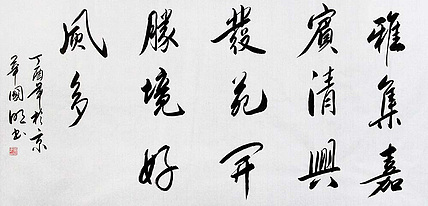 雅集嘉
賓清興
發苑開
勝境好
風多
丁酉年於京
華國明書